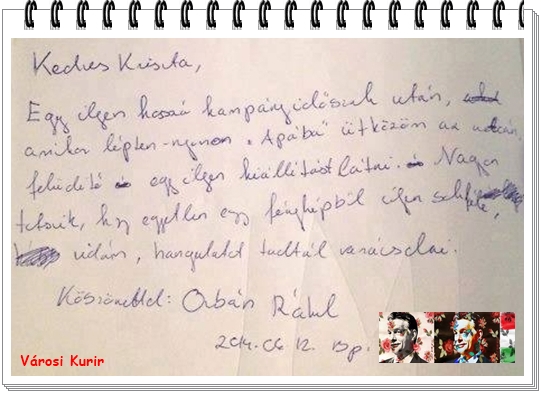 Kedves Kriszta,
Egy ilyen hosszú kampányidőszak után,
amikor lépten-nyomon „Apába" ütközöm az utcán,
felüdítő egy ilyen kiállítást látni. Nagyon
tetszik, hogy egyetlen egy fényképből ilyen sokféle,
vidám, hangulatot tudtál varázsolni.
Köszönettel: Orbán Ráhel
2014.06.12. Bp.
Városi Kurir